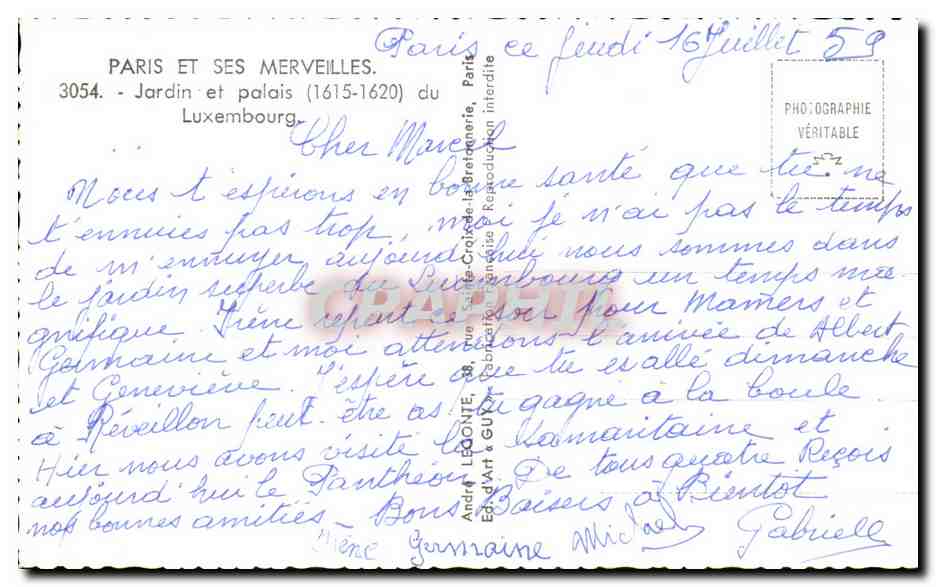 Paris ce jeudi 16 Juillet 59
PARIS ET SES MERVEILLES.
3054. - Jardin et palais (1615-1620) du
Luxembourg.
PHOTOGRAPHIE
VÉRITABLE
Cher Marcel
Nous t'espérons en bonne santé que tu ne
t'ennuies pas trop, moi je n'ai pas le temps
de m'ennuyer, aujourd'hui nous sommes dans
le jardin superbe du Luxembourg un temps ma
gnifique. Irène repart ce soir pour Mamers et
Germaine et moi attendons l'arrivée de Albert
et Geneviève. J'espère que tu es allé dimanche
à Réveillon peut être as tu gagné à la boule.
Hier nous avons visité la Samaritaine et
aujourd'hui le Panthéon. De tous quatre Reçois
nos bonnes amitiés - Bons Baisers à Bientôt
Irène Germaine Michel Gabrielle
André LECONTE, 38, rue Sainte-Croix-de-la-Bretonnerie, Paris
Ed. d'Art « GUY » Fabrication Française - Reproduction interdite